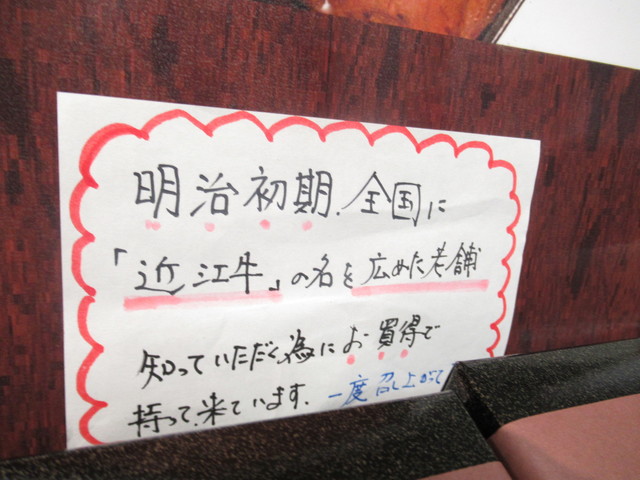 明治初期.全国に
「近江牛」の名を広めた老舗
知っていただく為にお買得で
持って来ています. 一度召し上がって